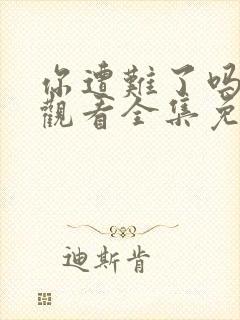 你遭難了吗
觀看全集免
迪斯肯